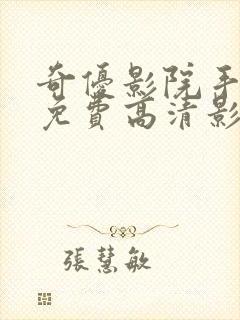 奇優影院手
免費高清影
張慧敏